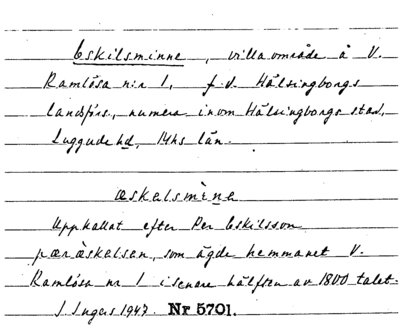 Eskilsminne, villaområde å V.
Ramlösa n:r 1, f.d. Hälsingborgs
landsförs., numera inom Hälsingborgs stad,
Luggude hd, Mhs län.
æskəlsmìnə
Uppkallat efter Per Eskilsson
pæræskəlsən, som ägde hemmanet V.
Ramlösa nr 1 i senare hälften av 1800 talet.
J. Ingers 1947. Nr 5701.